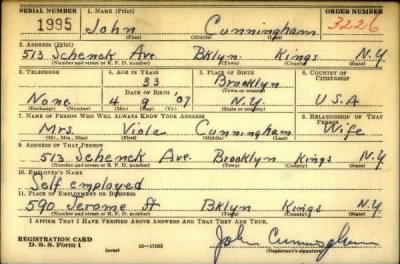 SERIAL NUMBER 1. NAME (Print) ORDER NUMBER
1995 John Cunningham 3226
(First) (Middle) (Last)
2. ADDRESS (Print)
513 Schenck Ave. Bklyn. Kings N.Y.
(Number and street or R. F. D. number) (Town) (County) (State)
3. TELEPHONE 4. AGE IN YEARS 5. PLACE OF BIRTH 6. COUNTRY OF CITIZENSHIP
33 Brooklyn
DATE OF BIRTH (Town or county)
None. 4 9 '07 N.Y. U.S.A
(Exchange) (Number) (Mo.) (Day) (Yr.) (State or country)
7. NAME OF PERSON WHO WILL ALWAYS KNOW YOUR ADDRESS 8. RELATIONSHIP OF THAT PERSON
Mrs. Viola Cunningham Wife
(Mr., Mrs., Miss) (First) (Middle) (Last)
9. ADDRESS OF THAT PERSON
513 Schenck Ave. Brooklyn Kings N.Y.
(Number and street or R. F. D. number) (Town) (County) (State)
10. EMPLOYER'S NAME
Self employed
11. PLACE OF EMPLOYMENT OR BUSINESS
590 Jerome St Bklyn Kings N.Y.
(Number and street or R. F. D. number) (Town) (County) (State)
I AFFIRM THAT I HAVE VERIFIED ABOVE ANSWERS AND THAT THEY ARE TRUE.
REGISTRATION CARD
D. S. S. Form 1 (over) 16—17105 John Cunningham